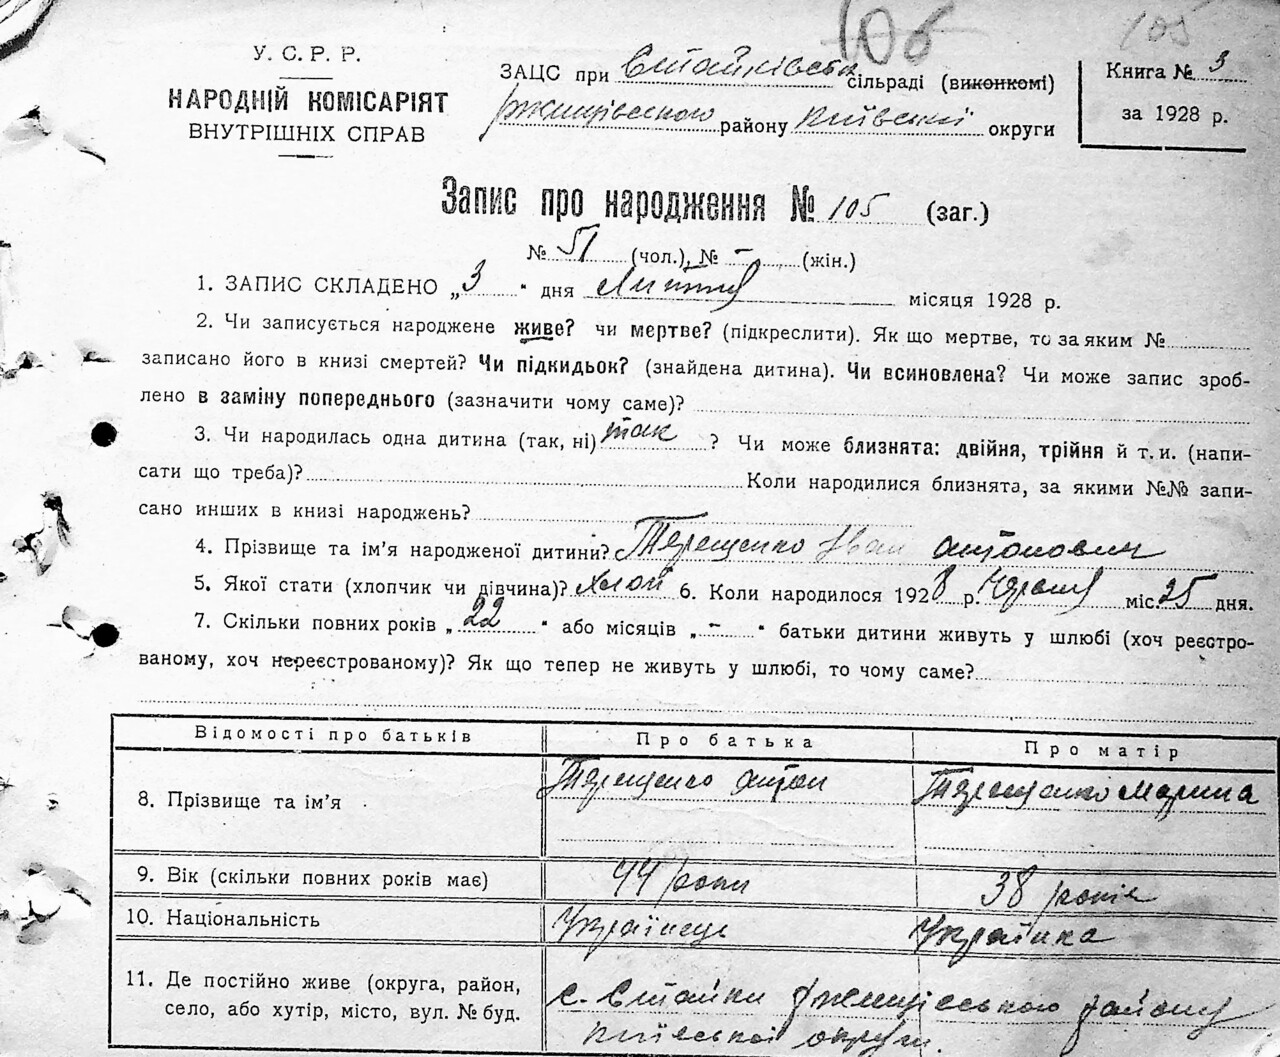 106
105
У. С. Р. Р.
НАРОДНІЙ КОМІСАРІЯТ
ВНУТРІШНІХ СПРАВ
ЗАЦС при Стайківській сільраді (виконкомі)
Ржищівського району Київської округи
Книга № 3
за 1928 р.
Запис про народження № 105 (заг.)
№ 51 (чол.), № – (жін.)
1. ЗАПИС СКЛАДЕНО „3“ дня Липня місяця 1928 р.
2. Чи записується народжене живе? чи мертве? (підкреслити). Як що мертве, то за яким №
записано його в книзі смертей? Чи підкидьок? (знайдена дитина). Чи всиновлена? Чи може запис зроб-
лено в заміну попереднього (зазначити чому саме)?
3. Чи народилась одна дитина (так, ні) так ? Чи може близнята: двійня, трійня й т. и. (напи-
сати що треба)? Коли народилися близнята, за якими №№ запи-
сано инших в книзі народжень?
4. Прізвище та ім’я народженої дитини? Терещенко Іван Антонович
5. Якої стати (хлопчик чи дівчина)? Хлоп 6. Коли народилося 1928 р. Червня міс. 25 дня.
7. Скільки повних років „22“ або місяців „–“ батьки дитини живуть у шлюбі (хоч реєстро-
ваному, хоч нереєстрованому)? Як що тепер не живуть у шлюбі, то чому саме?
Відомості про батьків Про батька Про матір
8. Прізвище та ім’я Терещенко Антон Терещенко Марина
9. Вік (скільки повних років має) 44 роки 38 років
10. Національність Українець Українка
11. Де постійно живе (округа, район, с. Стайки Ржищівського району
село, або хутір, місто, вул. № буд. Київської округи.